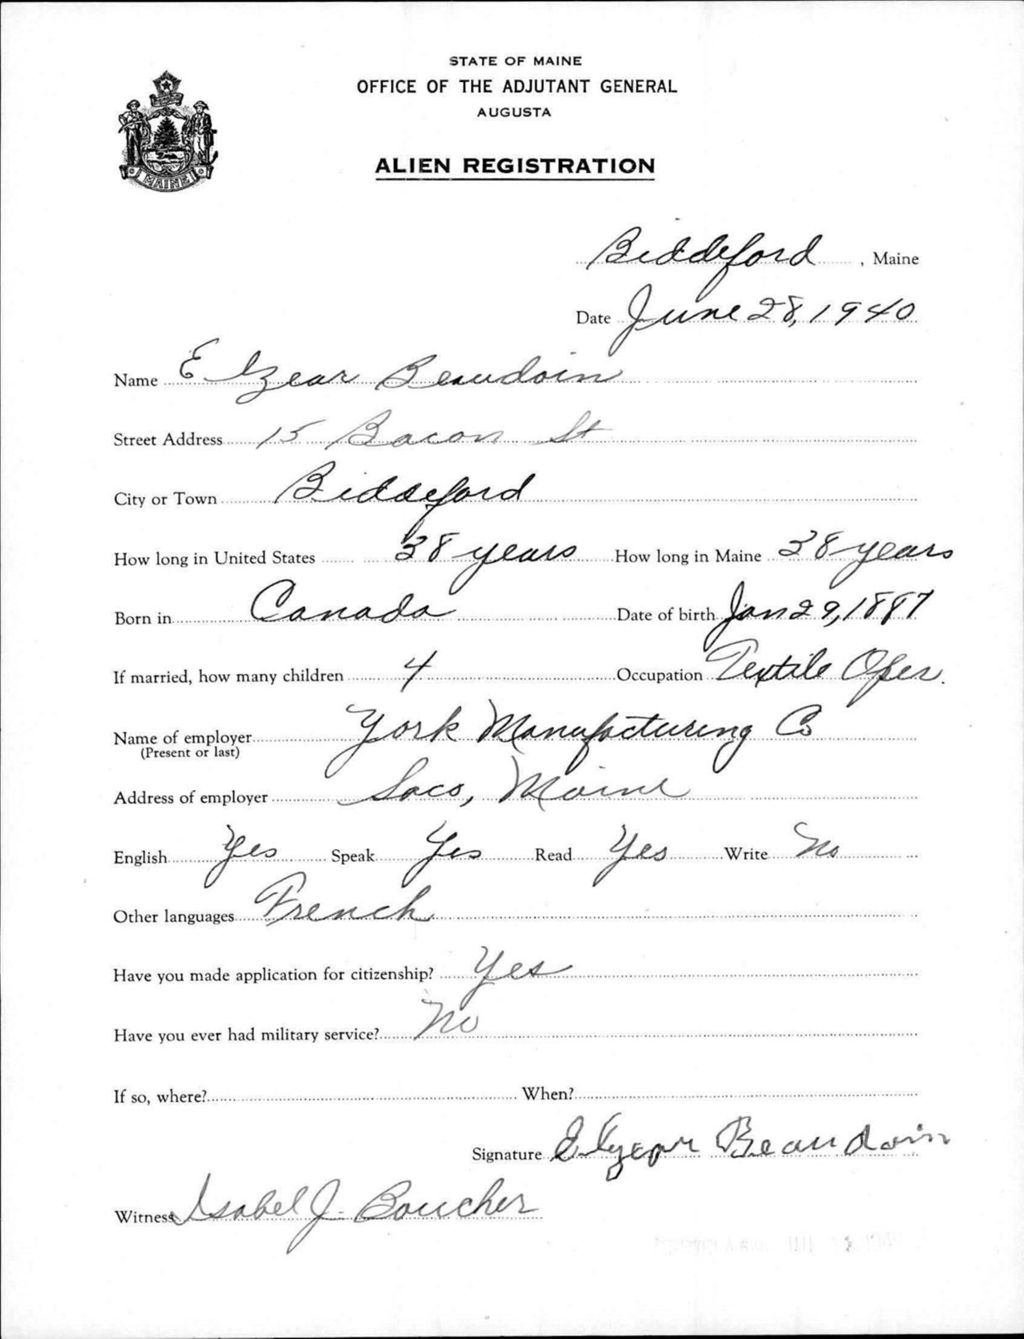 STATE OF MAINE
OFFICE OF THE ADJUTANT GENERAL
AUGUSTA
ALIEN REGISTRATION
MAINE
Biddeford, Maine
Date June 28, 1940
Name Elzear Beaudoin
Street Address 15 Bacon St
City or Town Biddeford
How long in United States 38 years How long in Maine 38 years
Born in Canada Date of birth Jan 29, 1887
If married, how many children 4 Occupation Textile Oper.
Name of employer York Manufacturing Co
(Present or last)
Address of employer Saco, Maine
English Yes Speak Yes Read Yes Write No
Other languages French
Have you made application for citizenship? Yes
Have you ever had military service? No
If so, where? When?
Signature Elzear Beaudoin
Witness Isabel J. Boucher